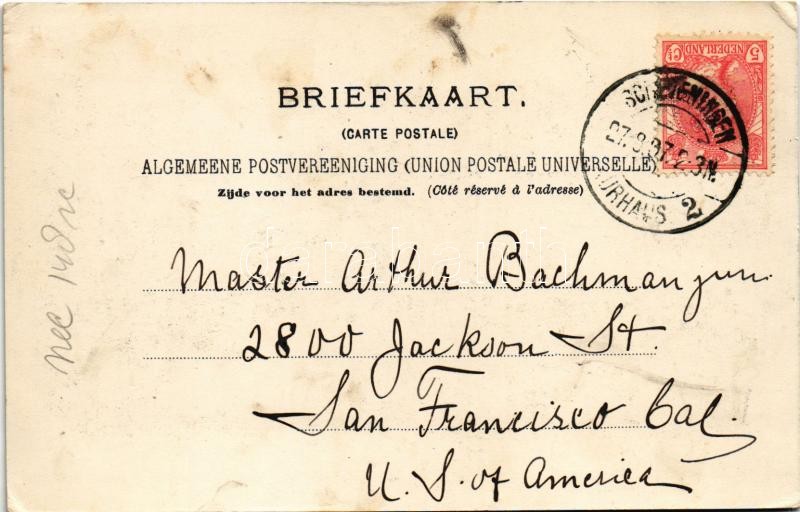 5 Ct
NEDERLAND
SCHEVENINGEN
27.8.07.2-3N.
KURHAUS 2
BRIEFKAART.
(CARTE POSTALE)
ALGEMEENE POSTVEREENIGING (UNION POSTALE UNIVERSELLE)
Zijde voor het adres bestemd. (Côté réservé à l'adresse)
Master Arthur Bachman jun.
2800 Jackson St.
San Francisco Cal.
U. S. of America